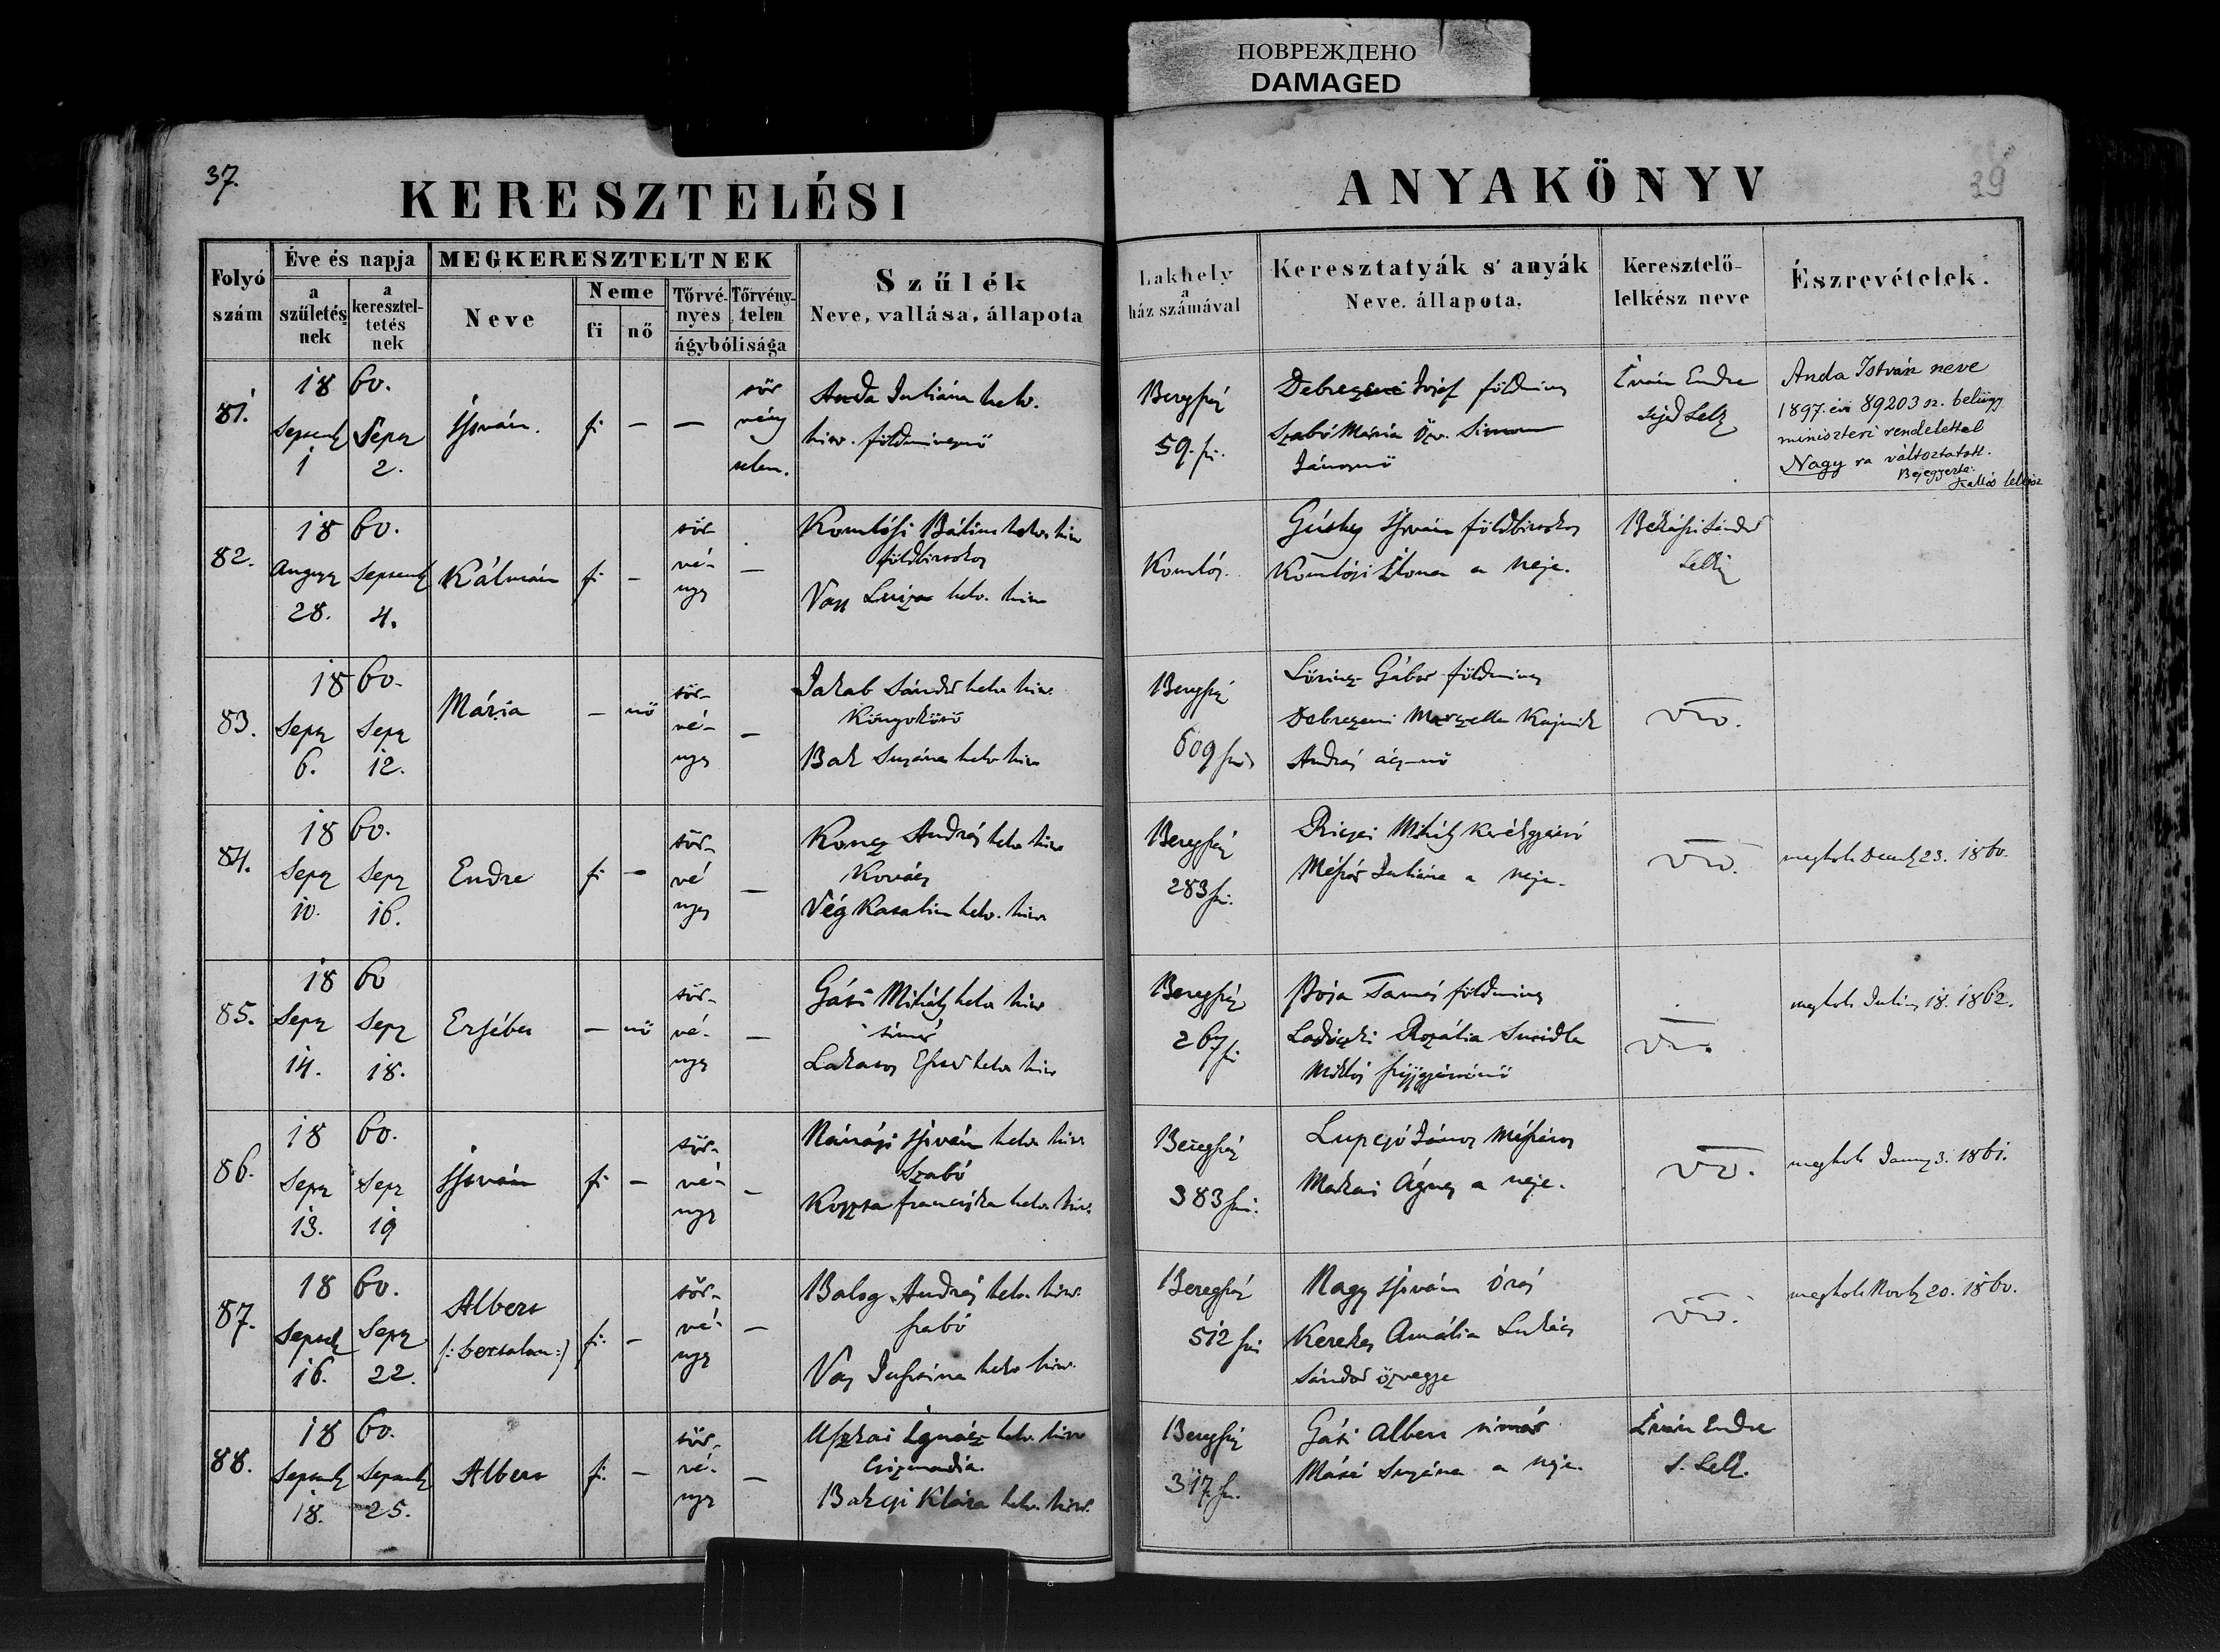 ПОВРЕЖДЕНО
DAMAGED
37.
KERESZTELÉSI
ANYAKÖNYV
39
Folyó szám
Éve és napja
a születés nek
a keresztel- tetés nek
MEGKERESZTELTNEK
Neve
Neme
fi
nő
Törvé- nyes
Törvény- telen
ágybólisága
Szűlék
Neve, vallása, állapota
Lakhely
a
ház számával
Keresztatyák s' anyák
Neve, állapota.
Keresztelő-
lelkész neve
Észrevételek.
81.
1860.
Septemb 1
Sept 2.
István.
fi
—
—
tör
vény
telen.
Anda Juliánna helv.
hitv. földmivesnő
Beregsz
59. sz.
Debreczeni Jósef földmives
Szabó Mária özv. Simon
Jánosnő
Iván Endre
segéd Lelk
Anda István neve
1897. évi 89203 sz. belügy
miniszteri rendelettel
Nagy ra változtatott.
Bejegyezte:
lelkész
82.
1860.
Augusz 28.
Septemb 4.
Kálmán
fi
—
tör
vé-
nyes
—
Komlósi Bálint helv. hitv
földbirtokos
Vass Luiza helv. hitv
Komlós.
István földbirtokos
Komlósi Ilona a neje.
Békássi Sándor
Lelk
83.
1860.
Sept 6.
Sept 12.
Mária
—
nő
tör-
vé-
nyes
—
Jakab Sándor helv. hitv.
Könyvkötő
Bak Suzána helv hitv
Beregsz
609 sz
Lőrincz Gábor földmives
Debreczeni Marczella Kajnik
András ács-nő
84.
1860.
Sept 10.
Sept 16.
Endre
fi
—
tör-
vé
nyes
—
Koncz András helv. hitv
Kovács
Vég Katalin helv. hitv.
Beregsz
283 sz.
Riczei Mihály Kerékgyártó
Mészáros Juliána a neje.
megholt Decemb 23. 1860.
85.
1860
Sept 14.
Sept 18.
Erzsébet
—
nő
tör-
vé-
nyes
—
Gáti Mihály helv. hitv
timár
Lakatos Eszter helv. hitv
Beregsz
267 sz
Pója Tamás földmives
Ladóczki Rozália Smidla
Miklós
megholt Julius 18. 1862.
86.
1860.
Sept 13.
Sept 19
István
fi
—
tör-
vé-
nyes
—
Nánási István helv. hitv.
Szabó
Kopzsa Francziska helv. hitv.
Beregsz
383 sz.
Lupcsó János Mészáros
Makai Ágnes a neje.
megholt Januar 3. 1861.
87.
1860.
Septemb 16.
Sept 22.
Albert
/: Bertalan :/
fi.
—
tör-
vé-
nyes
—
Balog András helv. hitv.
szabó
Vas Jusztina helv hitv.
Beregsz
512 sz
Nagy István órás
Kerekes Amália Lukács
Sándor özvegye
megholt Novemb 20. 1860.
88.
1860.
Septemb 18.
Septemb 25.
Albert
fi.
—
tör-
vé-
nyes
—
Uszkai Ignácz helv. hitv
Csizmadia.
Bakcsi Klára helv. hitv.
Beregsz
317. sz.
Gáti Albert timár
Máté Suzána a neje.
Iván Endre
s. Lelk.